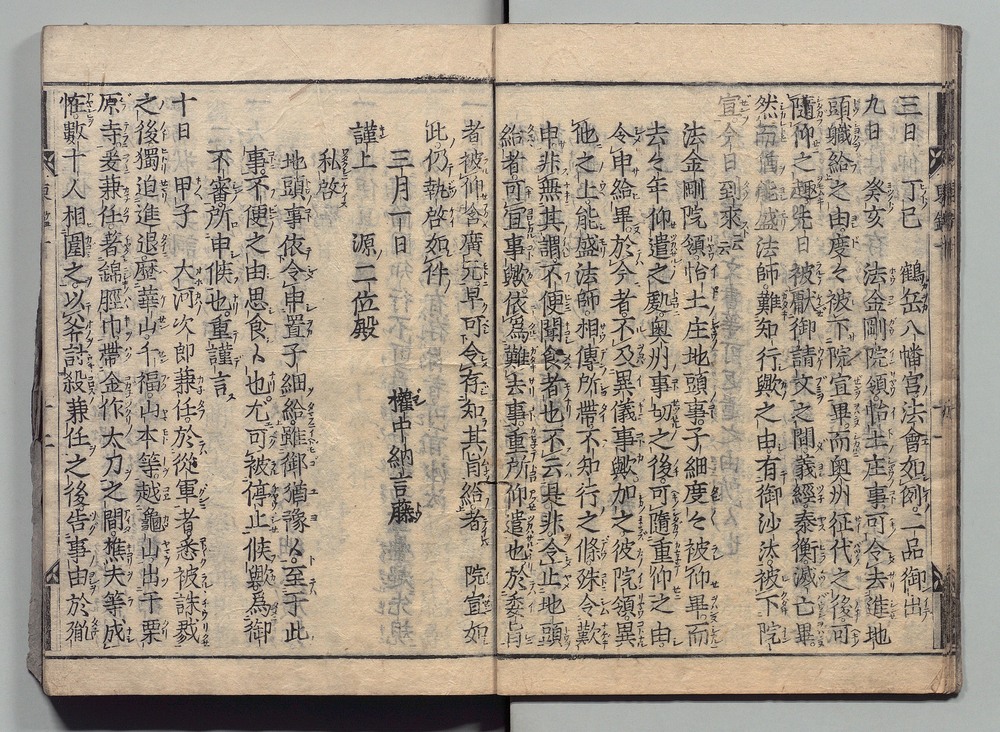 三日丁巳鶴岳八幡宮法會如例。二品御出
九日癸亥法金剛院領怡土庄事可令去進地
頭軄給之由。度々被下院宣畢。而奥州征代之後。可
隨仰之趣。先日被獻御請文之間。義經。泰衡。滅亡畢
然而猶能盛法師。難知行與之由。有御沙汰。被下院
宣今日到來云云
法金剛院領怡土庄地頭事。子細度々被仰畢。而
去々年仰遣之處。奥州事切之後。可隨重仰之由
令申給畢。於今者。不及異儀事歟。加之彼院領異
他之上。能盛法師。相傳所帶。不知行之條殊令歎
申。非無其謂。不便聞食者也。不云是非。令止地頭
給者可宜事歟。依爲難去事。重所仰遣也。於委旨
者被仰含廣元早。可令存知其旨給。者院宣如
此。仍執啓如件
三月一日權中納言藤
謹上源二位殿
私啓
地頭事依令申置子細給。雖御猶豫候。至于此
事。不便之由思食候也。尤可被停止候歟。爲御
不審所申候也。重謹言
十日甲子大河次郎兼任。於從軍者悉被誅戮
之後。獨迫進退。歴華山。千福。山本等。越龜山出于栗
原寺。爰兼任。著錦脛巾。帶金作太刀之間。樵夫等成
恠。數十人相圍之。以斧討殺兼任之後。告事由於胤
東鑑十
十二